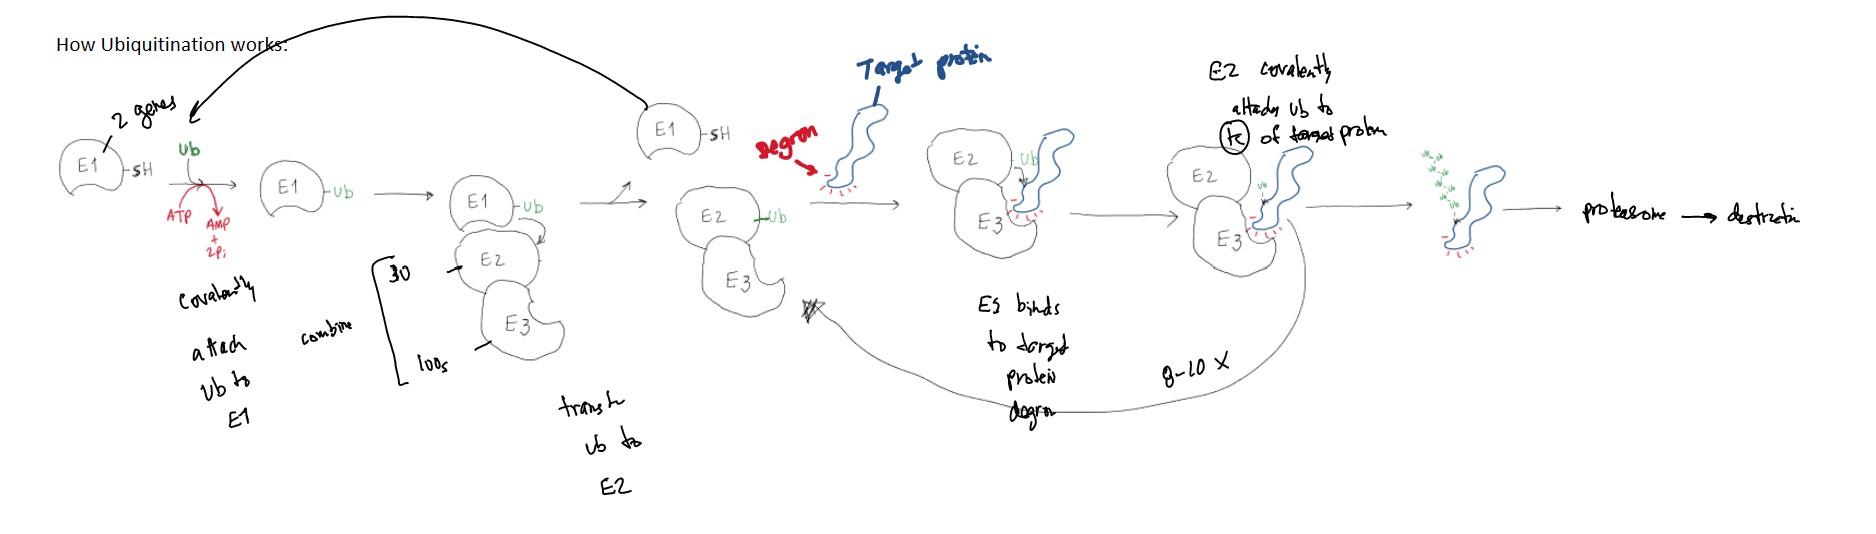 How Ubiquitination works:
2 genes
E1
-SH
Ub
ATP
AMP
+
2Pi
Covalently
attach
Ub to
E1
E1
-Ub
E1
-Ub
E2
E3
combine
30
100s
transfer
Ub to
E2
E1
-SH
E2
-Ub
E3
Target protein
Degron
E2
Ub
E3
E3 binds
to target
protein
degron
E2 covalently
attaches Ub to
K of target protein
E2
Ub
E3
8-10 X
Ub-Ub
Ub
Ub
Ub-Ub
Ub
proteasome → destruction